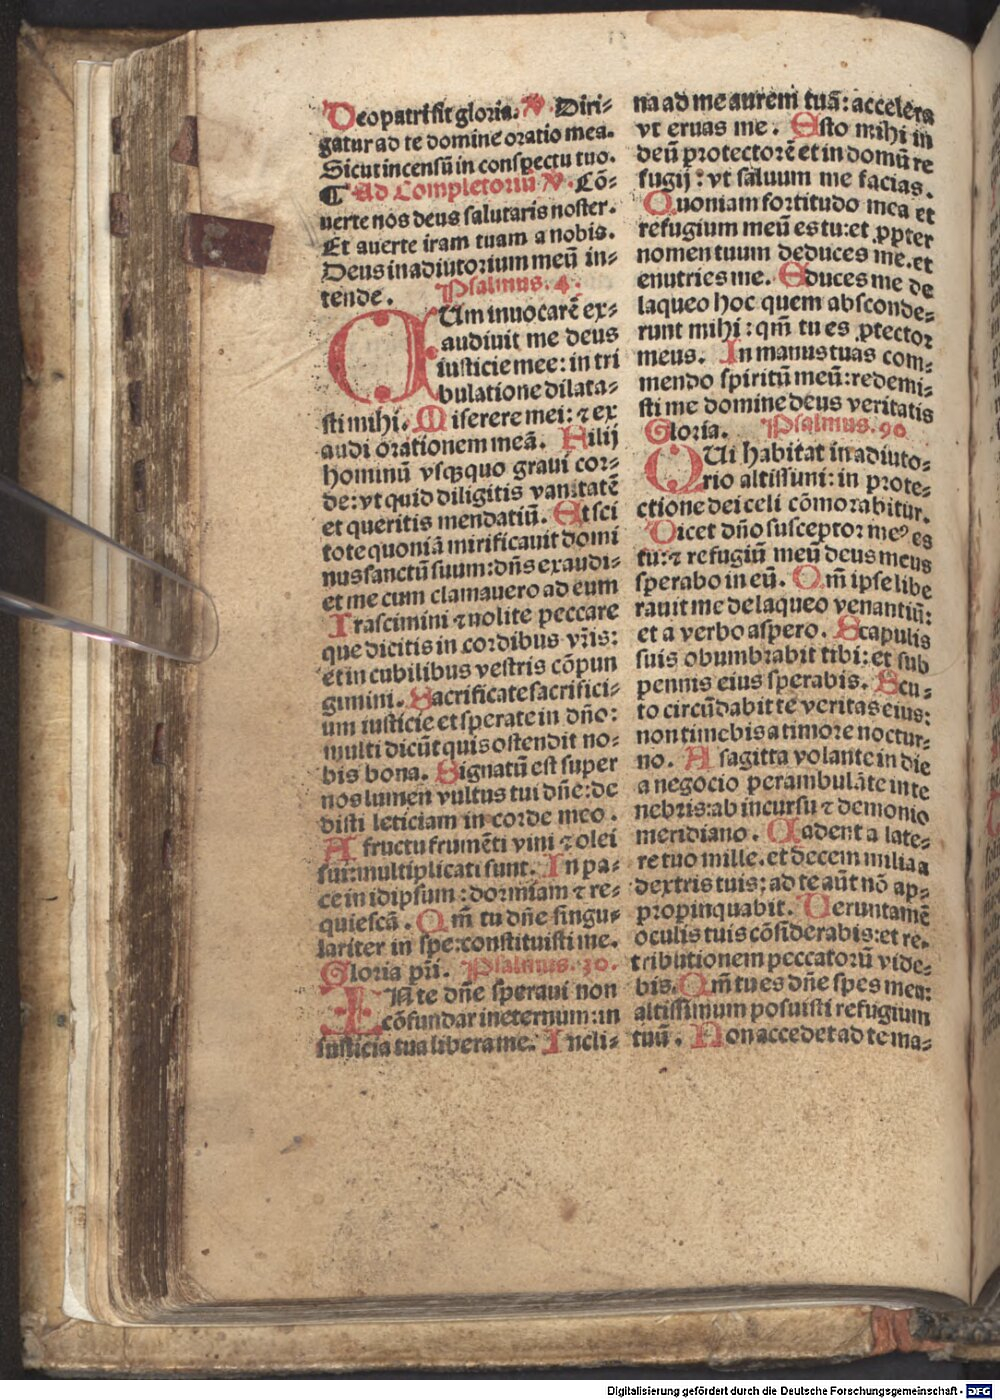 Deo patri sit gloria. V. Diri⸗
gatur ad te domine oratio mea.
Sicut incensū in conspectu tuo.
¶ Ad Completoriū V. Cō⸗
uerte nos deus salutaris noster.
Et auerte iram tuam a nobis.
Deus in adiutorium meū in⸗
tende. Psalmus. 4.
CUm inuocarē ex⸗
audiuit me deus
iusticie mee: in tri
bulatione dilata⸗
sti mihi. Miserere mei: ⁊ ex
audi orationem meā. Filij
hominū vsqꝫquo graui cor⸗
de: vt quid diligitis vanitatē
et queritis mendatiū. Et sci
tote quoniā mirificauit domi
nus sanctū suum: dn̄s exaudi⸗
et me cum clamauero ad eum
Irascimini ⁊ nolite peccare
que dicitis in cordibus vr̄is:
et in cubilibus vestris cōpun
gimini. Sacrificate sacrifici⸗
um iusticie et sperate in dn̄o:
multi dicūt quis ostendit no⸗
bis bona. Signatū est super
nos lumen vultus tui dn̄e: de
disti leticiam in corde meo.
A fructu frumēti vini ⁊ olei
sui: multiplicati sunt. In pa⸗
ce in idipsum: dormiam ⁊ re⸗
quiescā. Qm̄ tu dn̄e singu⸗
lariter in spe: constituisti me.
Gloria pr̄i. Psalmus. 30.
IN te dn̄e speraui non
cōfundar in eternum: in
iusticia tua libera me. Incli⸗
na ad me aurem tuā: accelera
vt eruas me. Esto mihi in
deū protectorē et in domū re
fugij: vt saluum me facias.
Quoniam fortitudo mea et
refugium meū es tu: et ꝓpter
nomen tuum deduces me. et
enutries me. Educes me de
laqueo hoc quem absconde⸗
runt mihi: qm̄ tu es ꝓtector
meus. In manus tuas com⸗
mendo spiritū meū: redemi⸗
sti me domine deus veritatis
Gloria. Psalmus. 90
QUi habitat in adiuto⸗
rio altissimi: in prote⸗
ctione dei celi cōmorabitur.
Dicet dn̄o susceptor meꝰ es
tu: ⁊ refugiū meū deus meus
sperabo in eū. Qm̄ ipse libe
rauit me de laqueo venantiū:
et a verbo aspero. Scapulis
suis obumbrabit tibi: et sub
pennis eius sperabis. Scu⸗
to circūdabit te veritas eius:
non timebis a timore noctur⸗
no. A sagitta volante in die
a negocio perambulāte in te
nebris: ab incursu ⁊ demonio
meridiano. Cadent a late⸗
re tuo mille. et decem milia a
dextris tuis: ad te aūt nō ap⸗
propinquabit. Veruntamē
oculis tuis cōsiderabis: et re⸗
tributionem peccatorū vide⸗
bis. Qm̄ tu es dn̄e spes mea:
altissimum posuisti refugium
tuū. Non accedet ad te ma⸗
Digitalisierung gefördert durch die Deutsche Forschungsgemeinschaft - DFG